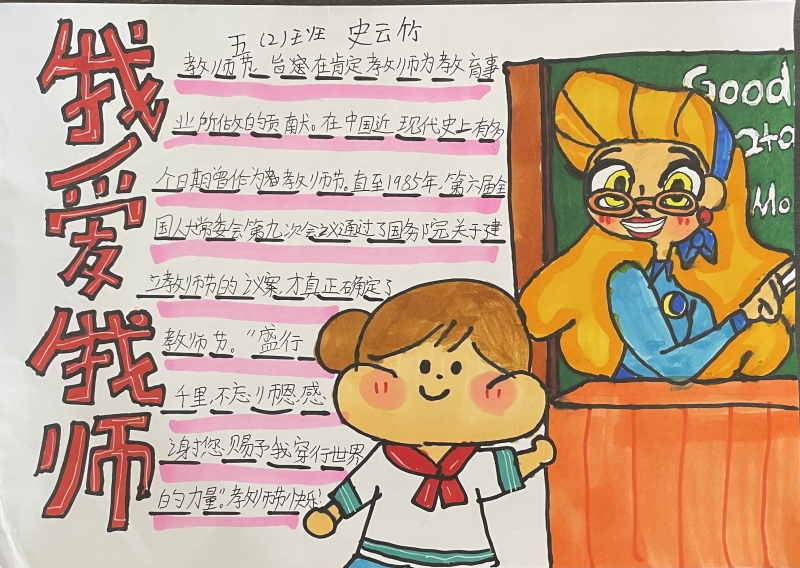 我爱我师
五(2)班 史云竹
教师节,旨在肯定教师为教育事
业所做的贡献。在中国近现代史上有多
个日期曾作为着教师节。直至1985年,第六届全
国人大常委会第九次会议通过了国务院关于建
立教师节的议案,才真正确定了
教师节。“盛行
千里,不忘师恩,感
谢您,赐予我穿行世界
的力量”。教师节快乐!
Good
Mo